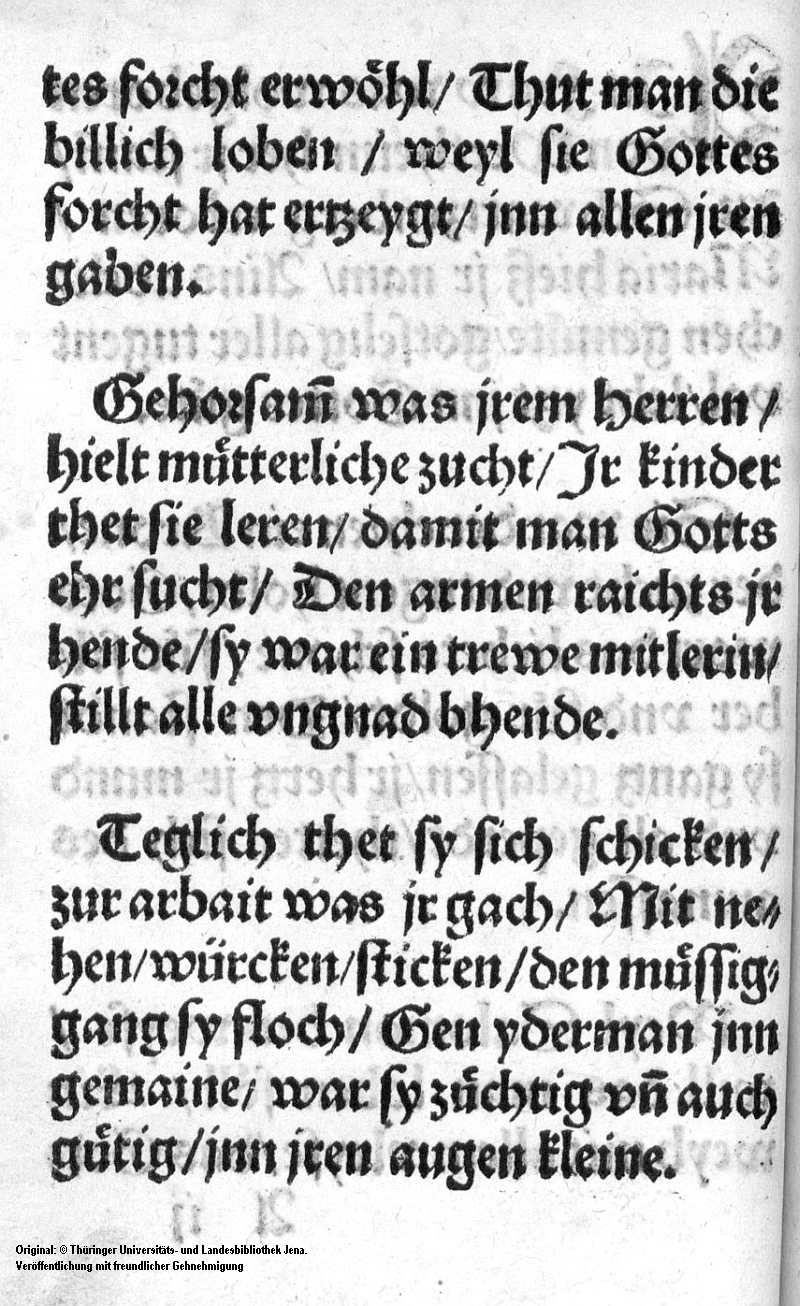 tes forcht erwöhl/ Thut man die
billich loben / weyl sie Gottes
forcht hat ertzeygt/ jnn allen jren
gaben.
Gehorsam̄ was jrem herren /
hielt mütterliche zucht/ Jr kinder
thet sie leren/ damit man Gotts
ehr sucht/ Den armen raichts jr
hende/ sy war ein trewe mitlerin/
stillt alle vngnad bhende.
Teglich thet sy sich schicken /
zur arbait was jr gach/ Mit ne⸗
hen/ würcken/ sticken/ den müssig⸗
gang sy floch/ Gen yderman jnn
gemaine/ war sy züchtig vn̄ auch
gütig/ jnn jren augen kleine.
Original: © Thüringer Universitäts- und Landesbibliothek Jena.
Veröffentlichung mit freundlicher Gehnehmigung